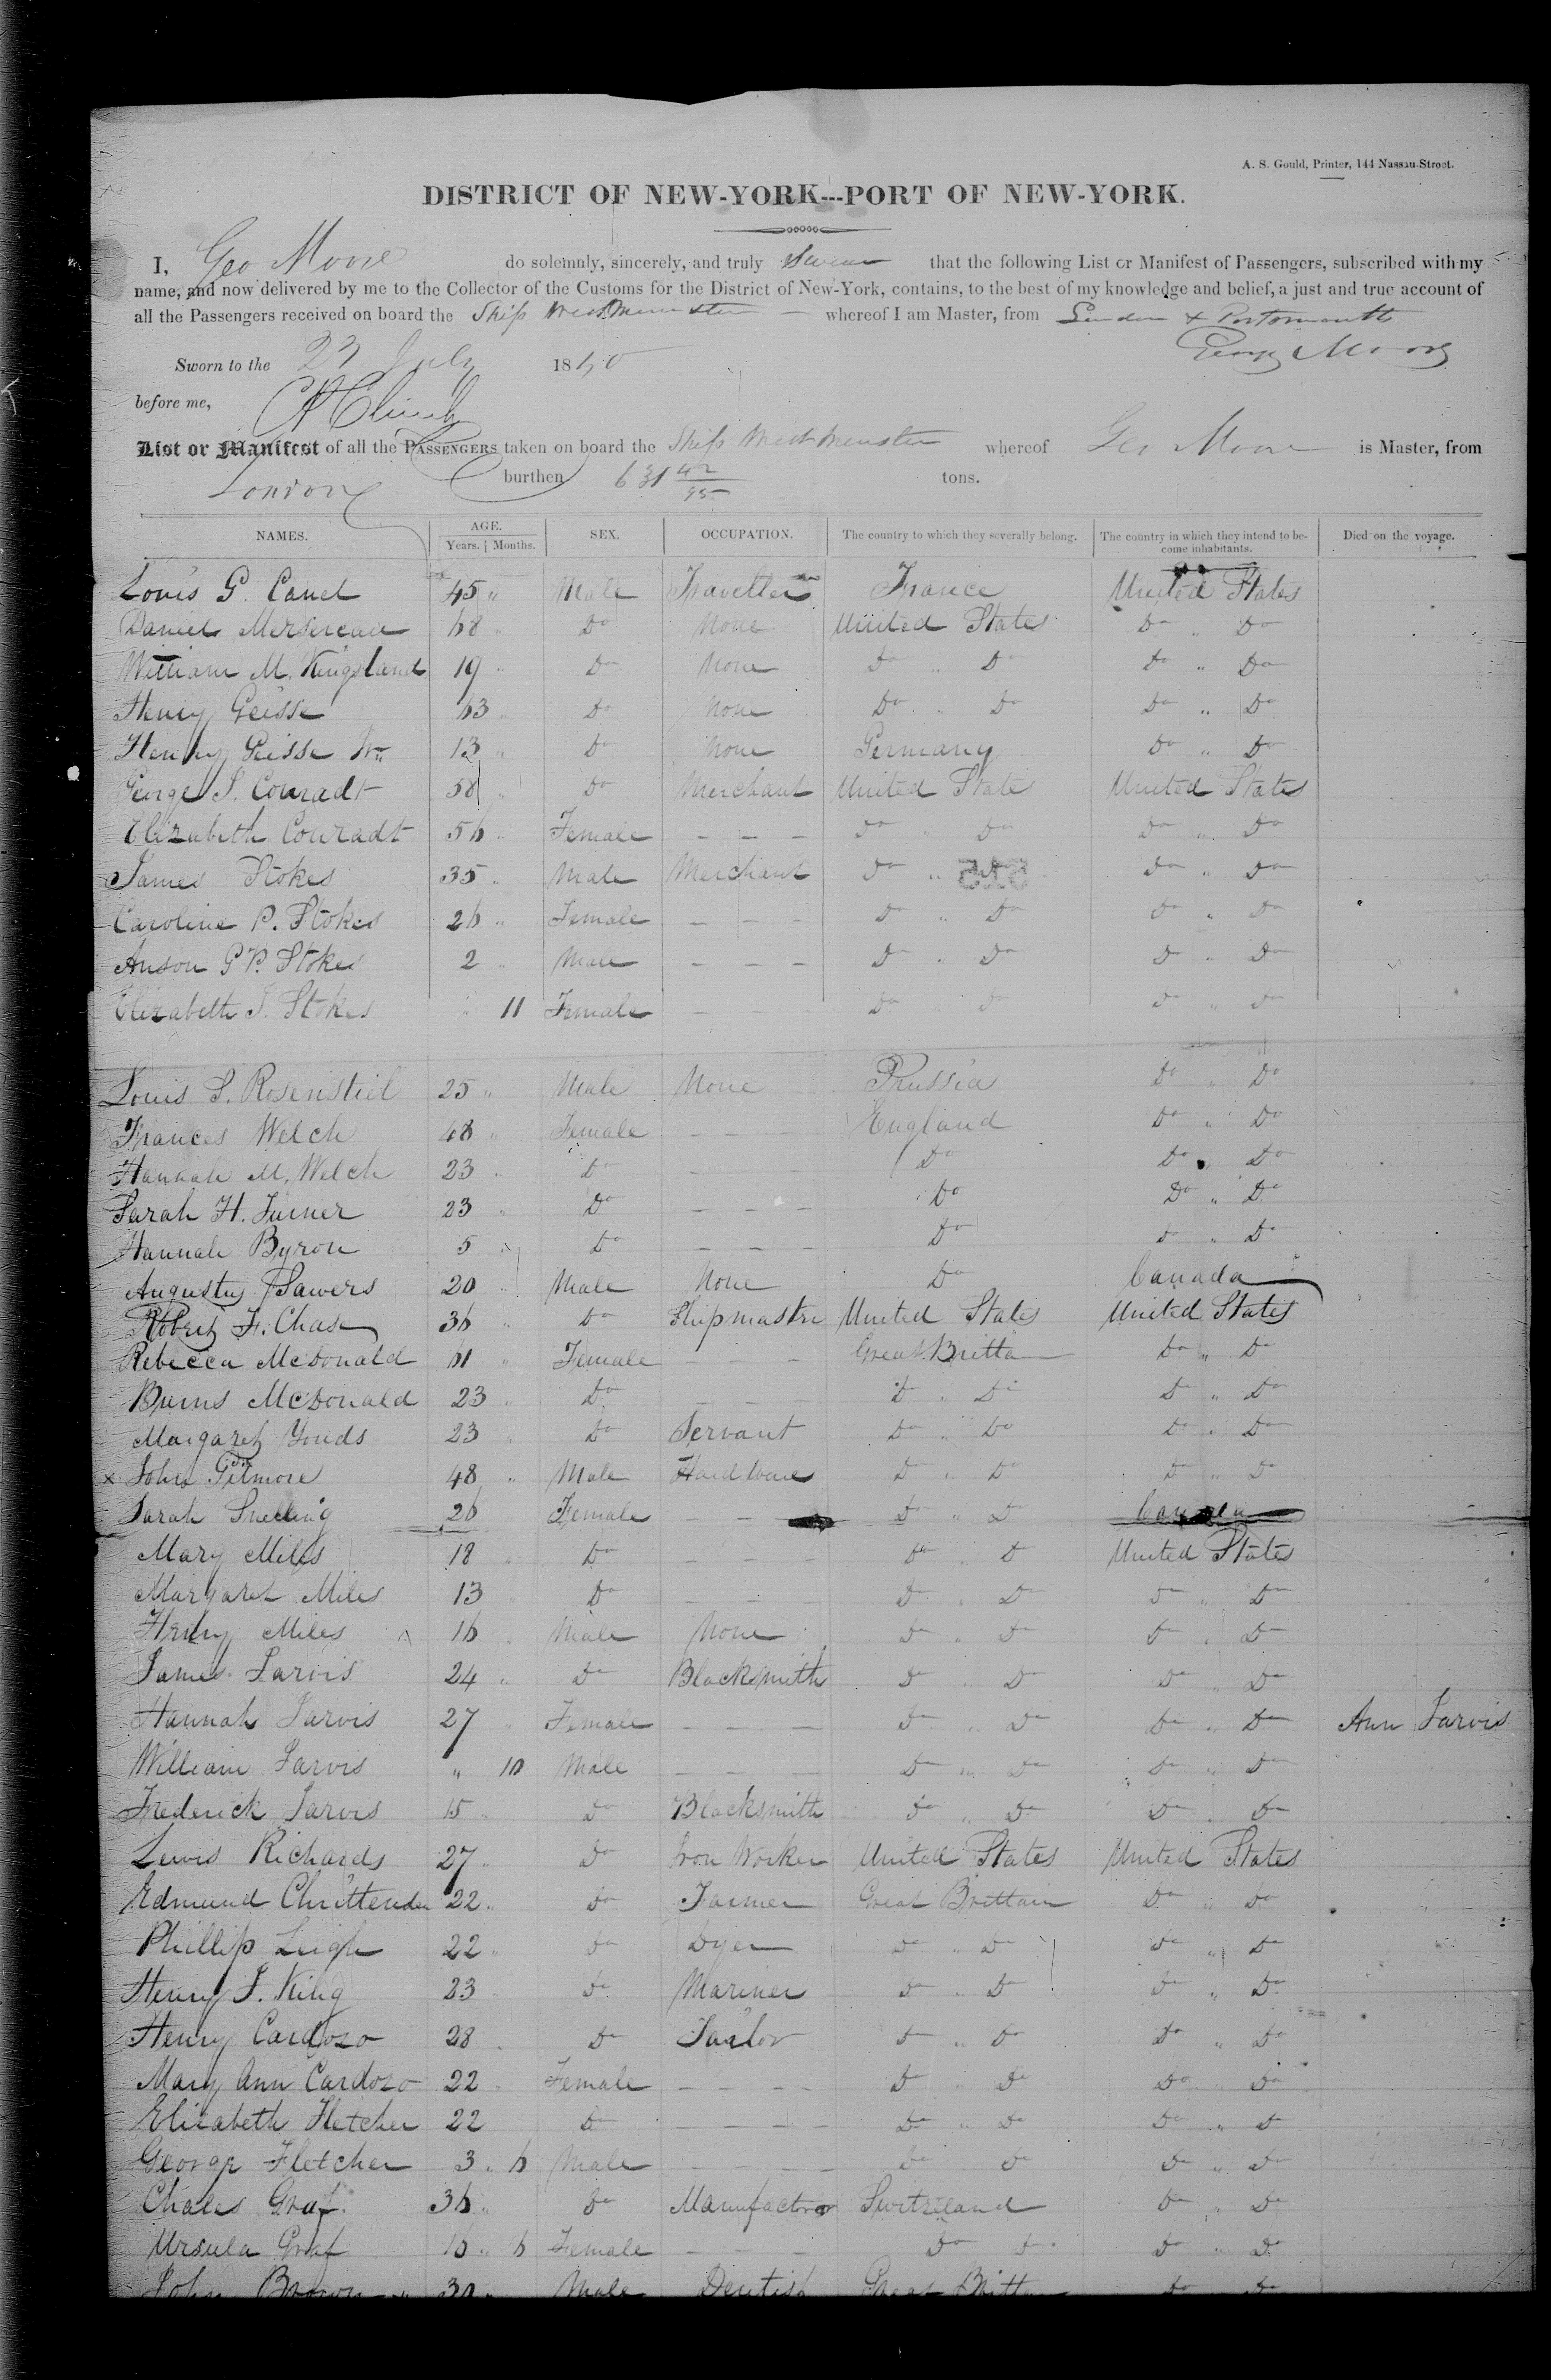 A. S. Gould, Printer, 144 Nassau-Street.
DISTRICT OF NEW-YORK---PORT OF NEW-YORK.
I, Geo Moore do solemnly, sincerely, and truly Swear that the following List or Manifest of Passengers, subscribed with my
name, and now delivered by me to the Collector of the Customs for the District of New-York, contains, to the best of my knowledge and belief, a just and true account of
all the Passengers received on board the Ship Westminster whereof I am Master, from London & Portsmouth
George Moore
Sworn to the 23 July 1850
before me,
List or Manifest of all the PASSENGERS taken on board the Ship Westminster whereof Geo Moore is Master, from
London burthen 631 42/95 tons.
NAMES. AGE. Years. Months. SEX. OCCUPATION. The country to which they severally belong. The country in which they intend to become inhabitants. Died on the voyage.
Louis G. Canel 45 " Male Traveller France United States
Daniel Mersereau 68 " Do None United States Do " Do
William M. Kingsland 19 " Do None Do " Do Do " Do
Henry Geisse 63 " Do None Do " Do Do " Do
Henry Geisse Jr. 13 " Do None Germany Do " Do
George S. Conradt 58 " Do Merchant United State United States
Elizabeth Conradt 56 " Female - - - Do " Do Do " Do
James Stokes 35 " Male Merchant Do " Do Do " Do
Caroline P. Stokes 26 " Female - - - Do " Do Do " Do
Anson G P. Stokes 2 " Male - - - Do " Do Do " Do
Elizabeth J. Stokes " 11 Female - - - Do " Do Do " Do
Louis S. Rosenstiel 25 " Male None Prussia Do " Do
Frances Welch 48 " Female - - - England Do " Do
Hannah M. Welch 23 " Do - - - Do Do " Do
Sarah H. Turner 23 " Do - - - Do Do " Do
Hannah Byron 5 " Do - - - Do Do " Do
Augustus Sawers 20 " Male None Do Canada
Robert F. Chase 36 " Do Shipmastre United States United States
Rebecca McDonald 61 " Female - - - Great Britta Do " Do
Burns McDonald 23 " Do - - - Do " Do Do " Do
Margaret Yonds 23 " Do Servant Do " Do Do " Do
x John Gilmore 48 " Male Hardware Do " Do Do " Do
Sarah Snelling 26 Female - - - Do " Do Canada
Mary Miles 18 " Do - - - Do " Do United States
Margaret Miles 13 " Do - - - Do " Do Do " Do
Henry Miles 16 " Male None Do " Do Do " Do
James Jarvis 24 " Do Blacksmith Do " Do Do " Do
Hannah Jarvis 27 " Female - - - Do " Do Do " Do Ann Jarvis
William Jarvis " 10 Male - - - Do " Do Do " Do
Frederick Jarvis 15 " Do Blacksmith Do " Do Do " Do
Lewis Richards 27 " Do Iron Worker United States United States
Edmund Chrittenden 22 " Do Farmer Great Brittain Do " Do
Phillip Leigh 22 " Do Dyer Do " Do Do " Do
Henry J. King 23 " Do Mariner Do " Do Do " Do
Henry Cardozo 28 " Do Tailor Do " Do Do " Do
Mary Ann Cardozo 22 " Female - - - - Do " Do Do " Do
Elizabeth Fletcher 22 Do - - - - Do " Do Do " Do
George Fletcher 3 " 6 Male - - - - Do Do Do " Do
Chales Graf. 36 " Do Manufactror Switzeland Do " Do
Ursula Graf 16 " 6 Female - - - Do Do Do " Do
John Brown 30 " Male Dentist Great Britta Do Do